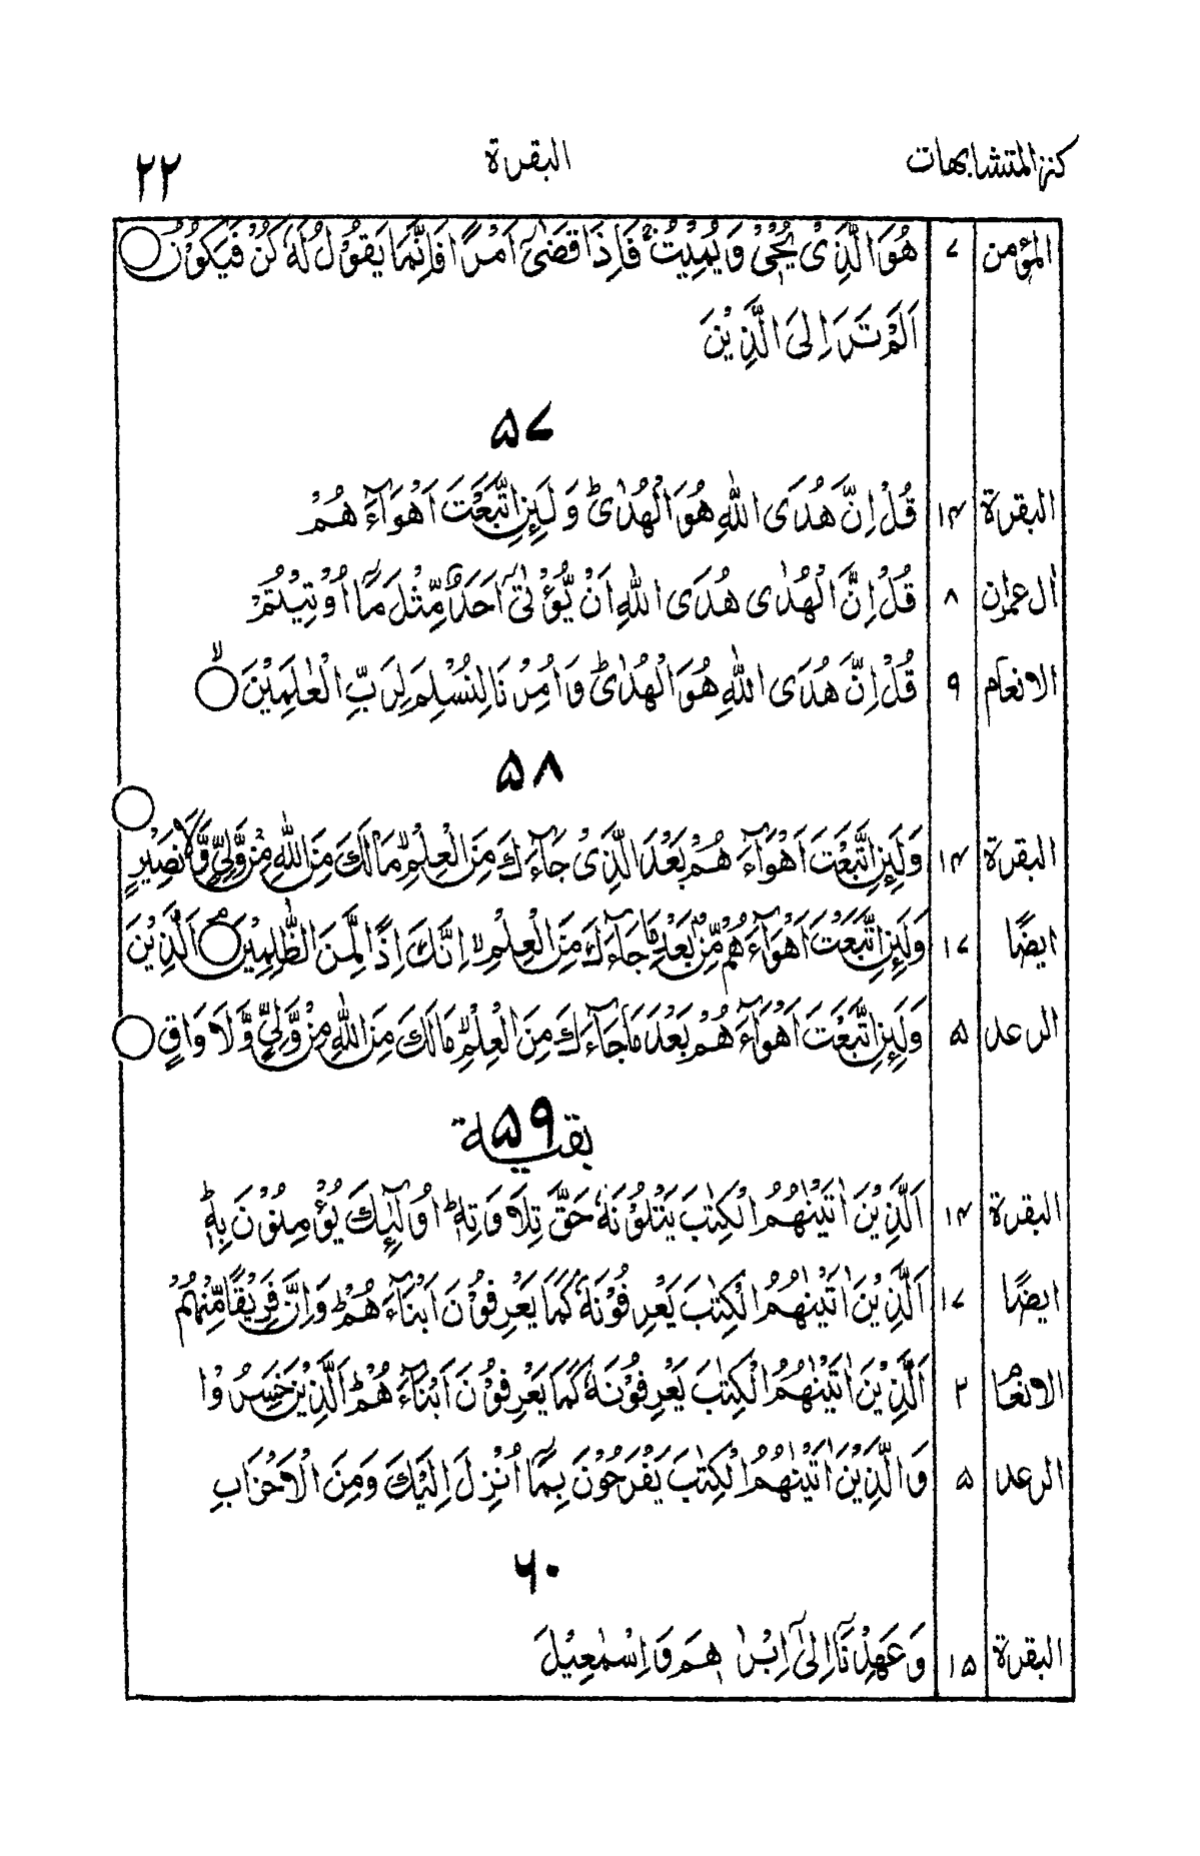 كنز المتشابهات البقرة ٢٢
المؤمن ۷ هُوَ الَّذِىْ يُحْىٖ وَيُمِيْتُ ۚ فَاِذَا قَضٰٓى اَمْرًا فَاِنَّمَا يَقُوْلُ لَهٗ كُنْ فَيَكُوْنُ ○
اَلَمْ تَرَ اِلَى الَّذِيْنَ
۵۷
البقرة ۱۴ قُلْ اِنَّ هُدَى اللّٰهِ هُوَ الْهُدٰى ؕ وَلَئِنِ اتَّبَعْتَ اَهْوَآءَهُمْ
اٰل عمرٰن ۸ قُلْ اِنَّ الْهُدٰى هُدَى اللّٰهِ اَنْ يُّؤْتٰٓى اَحَدٌ مِّثْلَ مَآ اُوْتِيْتُمْ
الانعام ۹ قُلْ اِنَّ هُدَى اللّٰهِ هُوَ الْهُدٰى ؕ وَاُمِرْنَا لِنُسْلِمَ لِرَبِّ الْعٰلَمِيْنَ ○ۙ
۵۸
البقرة ۱۴ وَلَئِنِ اتَّبَعْتَ اَهْوَآءَهُمْ بَعْدَ الَّذِىْ جَآءَكَ مِنَ الْعِلْمِ ۙ مَا لَكَ مِنَ اللّٰهِ مِنْ وَّلِىٍّ وَّلَا نَصِيْرٍ ○
ايضًا ۱۷ وَلَئِنِ اتَّبَعْتَ اَهْوَآءَهُمْ مِّنْۢ بَعْدِ مَا جَآءَكَ مِنَ الْعِلْمِ ۙ اِنَّكَ اِذًا لَّمِنَ الظّٰلِمِيْنَ ○ۘ اَلَّذِيْنَ
الرعد ۵ وَلَئِنِ اتَّبَعْتَ اَهْوَآءَهُمْ بَعْدَ مَا جَآءَكَ مِنَ الْعِلْمِ ۙ مَا لَكَ مِنَ اللّٰهِ مِنْ وَّلِىٍّ وَّلَا وَاقٍ ○
۵۹ بقية
البقرة ۱۴ اَلَّذِيْنَ اٰتَيْنٰهُمُ الْكِتٰبَ يَتْلُوْنَهٗ حَقَّ تِلَاوَتِهٖ ؕ اُولٰٓئِكَ يُؤْمِنُوْنَ بِهٖ ؕ
ايضًا ۱۷ اَلَّذِيْنَ اٰتَيْنٰهُمُ الْكِتٰبَ يَعْرِفُوْنَهٗ كَمَا يَعْرِفُوْنَ اَبْنَآءَهُمْ ؕ وَاِنَّ فَرِيْقًا مِّنْهُمْ
الانعام ۲ اَلَّذِيْنَ اٰتَيْنٰهُمُ الْكِتٰبَ يَعْرِفُوْنَهٗ كَمَا يَعْرِفُوْنَ اَبْنَآءَهُمْ ؕ اَلَّذِيْنَ خَسِرُوْا
الرعد ۵ وَالَّذِيْنَ اٰتَيْنٰهُمُ الْكِتٰبَ يَفْرَحُوْنَ بِمَآ اُنْزِلَ اِلَيْكَ وَمِنَ الْاَحْزَابِ
۶۰
البقرة ۱۵ وَعَهِدْنَآ اِلٰٓى اِبْرٰهٖمَ وَاِسْمٰعِيْلَ